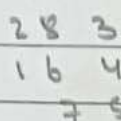 2 8 3
1 6 4
7